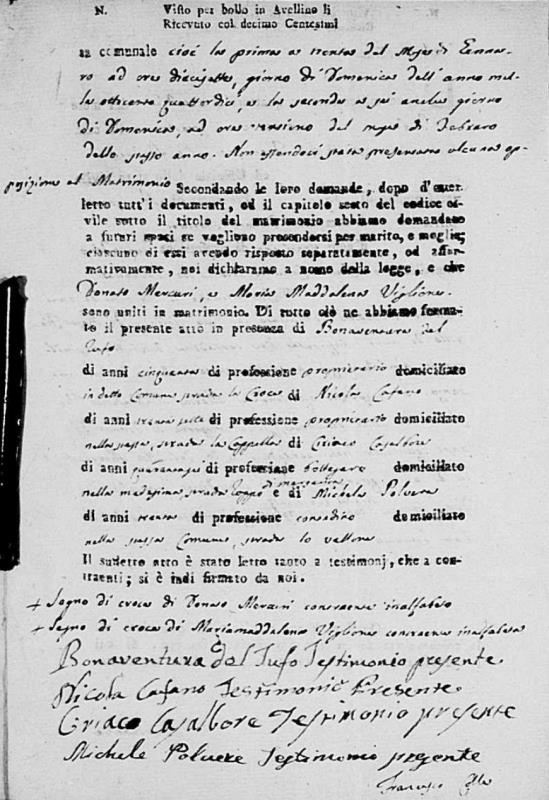 N. Visto per bollo in Avellino li
Ricevuto col decimo Centesimi
sa comunale cioè la prima a trenta del Mese di Genna-
ro ad ore diecisette, giorno di Domenica dell'anno mil-
le ottocento quattordici, e la seconda a sei anche giorno
di Domenica, ad ore ventuno del mese di Febraro
dello stesso anno. Non essendoci stata presentata alcuna op-
posizione al Matrimonio Secondando le loro domande, dopo d'aver
letto tutt'i documenti, ed il capitolo sesto del codice ci-
vile sotto il titolo del matrimonio abbiamo domandato
a futuri sposi se vogliono prendersi per marito, e moglie;
ciascuno di essi avendo risposto separatamente, ed affer-
mativamente, noi dichiaramo a nome della legge, e che
Donato Mercuri, e Maria Maddalena Viglione
sono uniti in matrimonio. Di tutto ciò ne abbiamo forma-
to il presente atto in presenza di Bonaventura del
Tufo
di anni cinquanta di professione proprietario domiciliato
in detto Comune strada la Croce di Nicola Cafano
di anni trenta sette di professione proprietario domiciliato
nella stessa, strada la Cappella di Ciriaco Casalbore
di anni quarantasei di professione bottegaro domiciliato
nella medesima strada e di Michele Polvere
di anni trenta di professione contadino domiciliato
nella stessa Comune, strada lo vallone
Il sudetto atto è stato letto tanto a testimonj, che a con-
traenti; si è indi firmato da noi.
+ Segno di croce di Donato Mercuri contraente inalfabeto
+ Segno di croce di Mariamaddalena Viglione contraente inalfabeta
Bonaventura del Tufo Testimonio presente
Nicola Cafano Testimonio Presente
Ciriaco Casalbore Testimonio presente
Michele Polvere Testimonio presente
Francesco